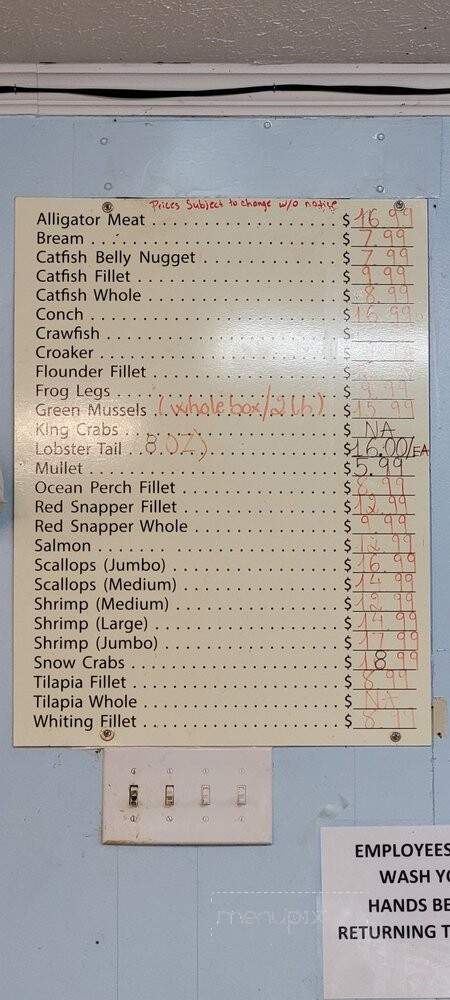 Prices Subject to change w/o notice
Alligator Meat $ 16.99
Bream $ 7.99
Catfish Belly Nugget $ 7.99
Catfish Fillet $ 9.99
Catfish Whole $ 8.99
Conch $ 16.99
Crawfish $
Croaker $
Flounder Fillet $
Frog Legs $ 9.99
Green Mussels (whole box/2 lb) $ 15.99
King Crabs $ NA
Lobster Tail 8 OZ) $ 16.00/EA
Mullet $ 5.99
Ocean Perch Fillet $ 8.99
Red Snapper Fillet $ 12.99
Red Snapper Whole $ 9.99
Salmon $ 12.99
Scallops (Jumbo) $ 16.99
Scallops (Medium) $ 14.99
Shrimp (Medium) $ 12.99
Shrimp (Large) $ 14.99
Shrimp (Jumbo) $ 17.99
Snow Crabs $ 18.99
Tilapia Fillet $ 8.99
Tilapia Whole $ NA
Whiting Fillet $
EMPLOYEES
WASH YO
HANDS BE
RETURNING T
menupix